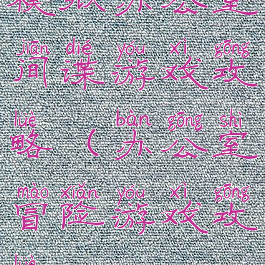 办公室
jiān dié yóu xì gōng
间谍游戏攻
lüè bàn gōng shì
略（办公室
mào xiǎn yóu xì gōng
冒险游戏攻
lüè